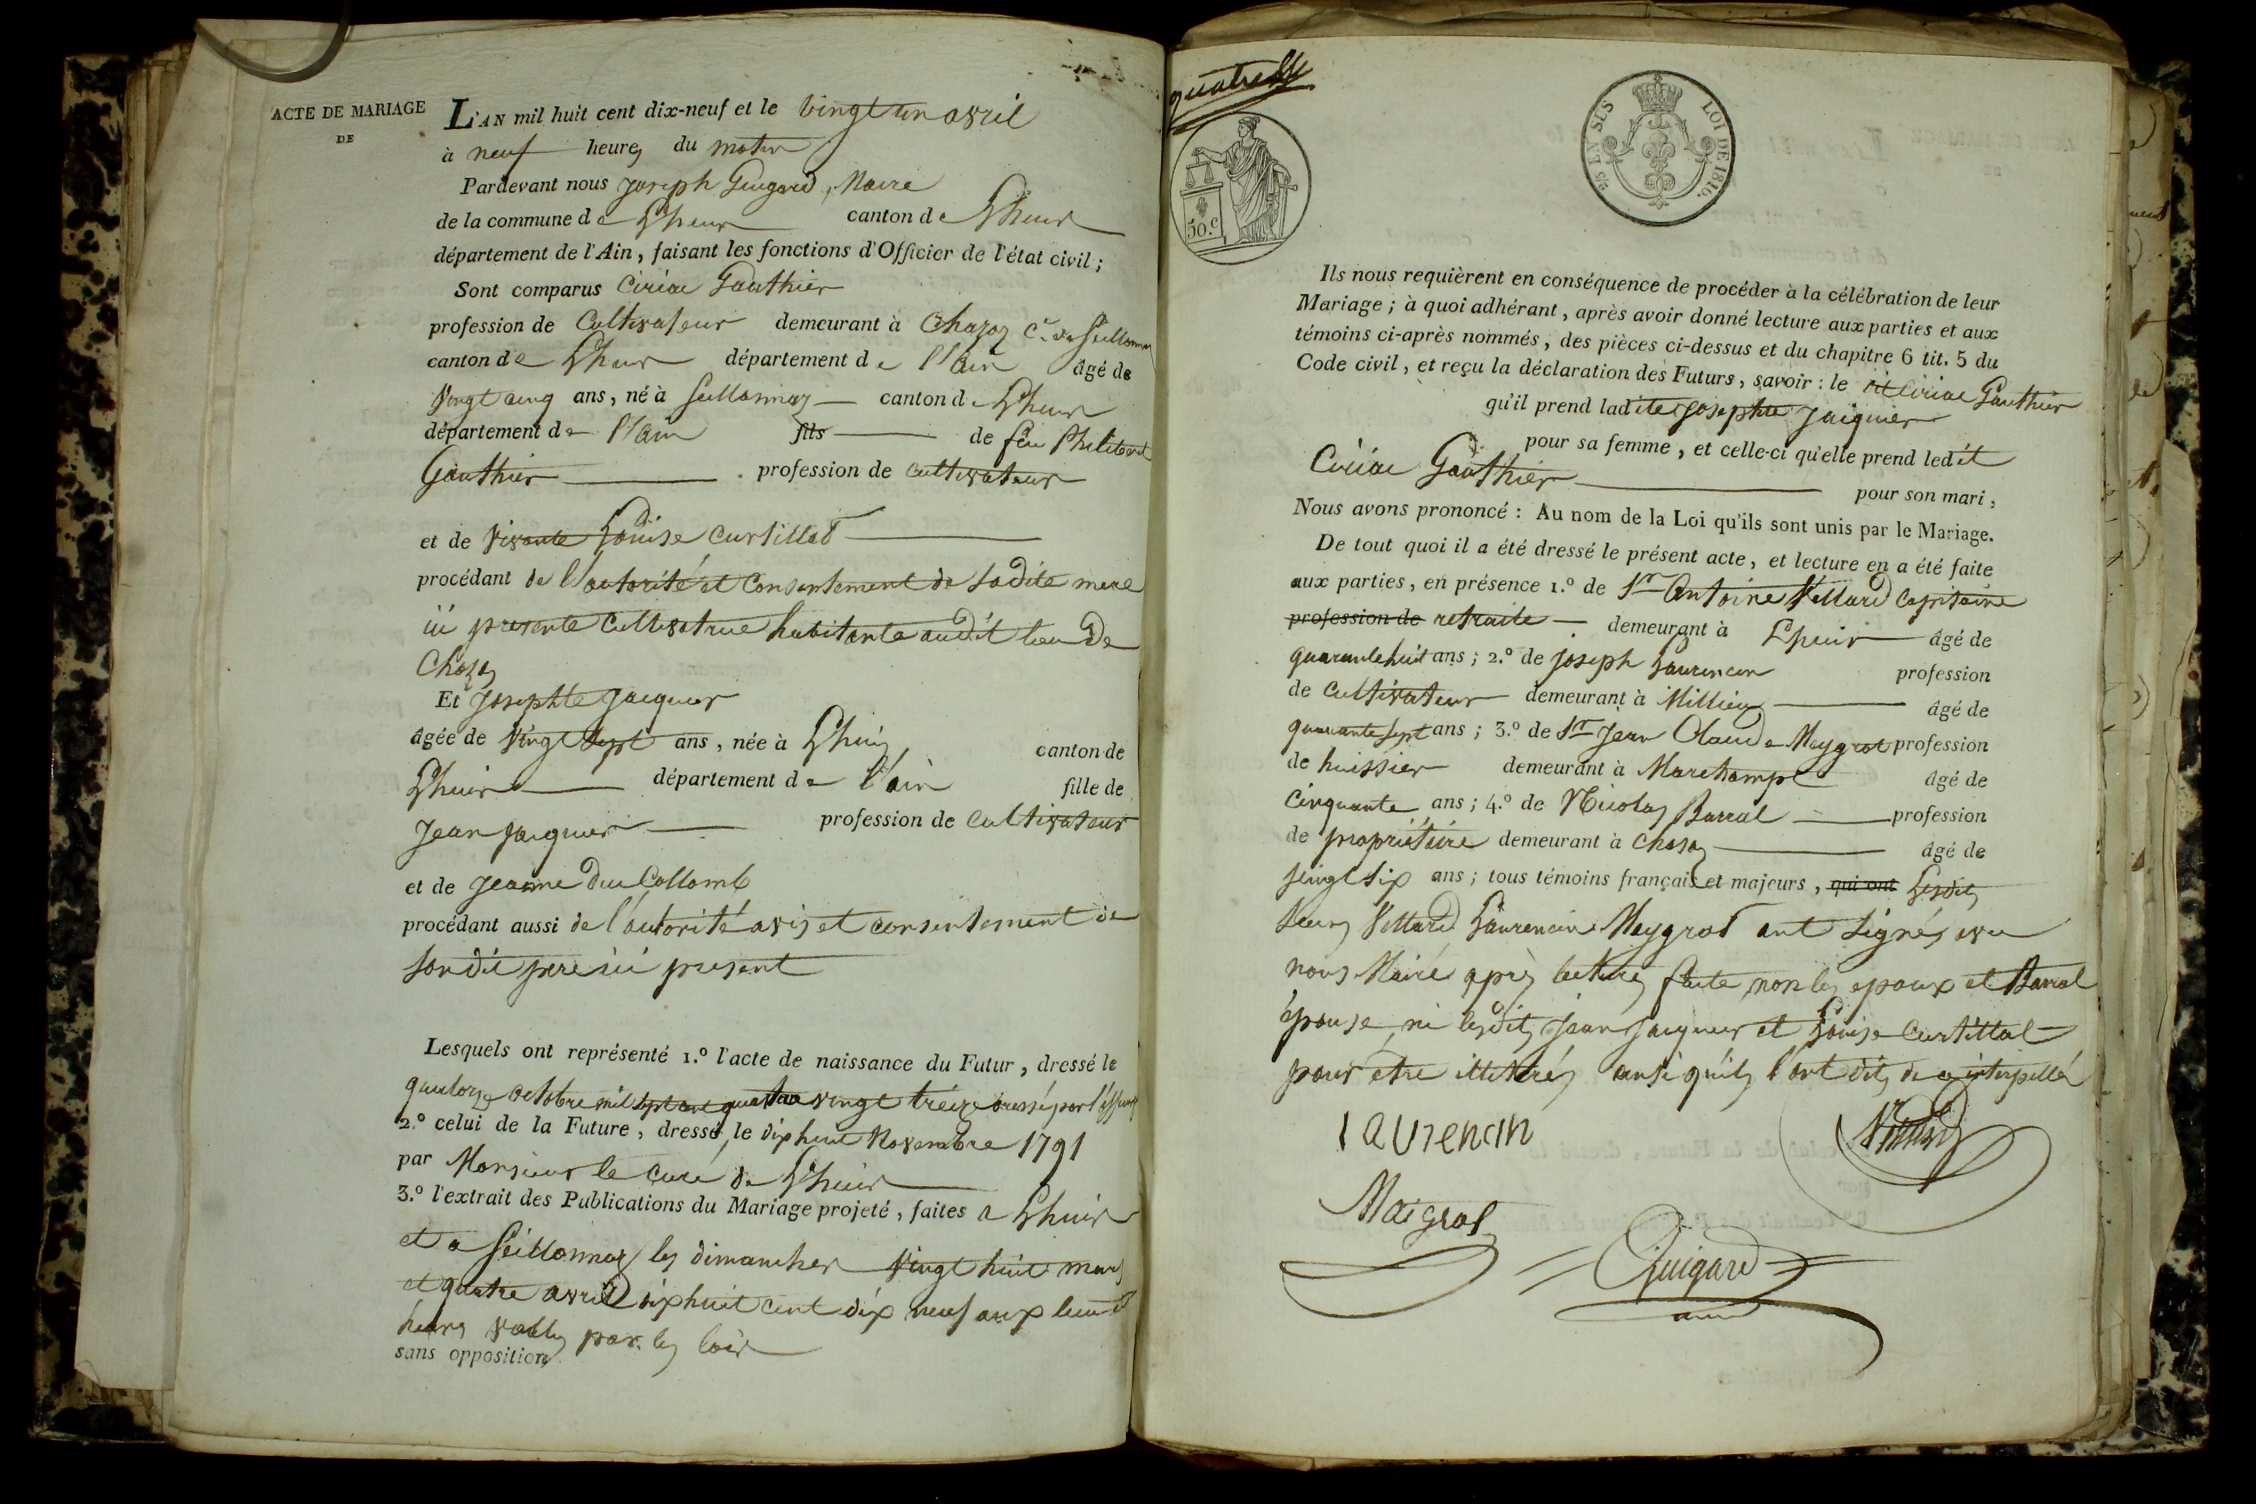 ACTE DE MARIAGE
DE
L'AN mil huit cent dix-neuf et le vingt un avril
à neuf heures du matin
Pardevant nous joseph Guigard, Maire
de la commune de Lhuis canton de Lhuis
département de l'Ain, faisant les fonctions d'Officier de l'état civil;
Sont comparus Ciriac Gauthier
profession de Cultivateur demeurant à Chazey Cne de Seillonnaz
canton de Lhuis département de l'ain âgé de
vingt cinq ans, né à Seillonnaz canton de Lhuis
département de l'ain fils de feu Philibert
Gauthier profession de cultivateur
et de vivante Louise Curtillat
procédant de l'autorité et consentement de sadite mere
ici presente cultivatrice habitante audit lieu de
Chazey
Et Josephte Jacquier
âgée de vingt sept ans, née à Lhuis canton de
Lhuis département de l'ain fille de
Jean Jacquier profession de cultivateur
et de Jeanne du Collomb
procédant aussi de l'autorité avis et consentement de
sondit pere ici present
Lesquels ont représenté 1.º l'acte de naissance du Futur, dressé le
quatorze octobre mil sept cent quatre vingt treize dressé par l'off
2.º celui de la Future, dressé le dix huit Novembre 1791
par Monsieur le curé de Lhuis
3.º l'extrait des Publications du Mariage projeté, faites a Lhuis
et a Seillonnaz les dimanches vingt huit mars
et quatre avril dix huit cent dix neuf aux lieux et
heures par les lois
sans opposition
25 EN SUS LOI DE 1816.
50.c
Ils nous requièrent en conséquence de procéder à la célébration de leur
Mariage; à quoi adhérant, après avoir donné lecture aux parties et aux
témoins ci-après nommés, des pièces ci-dessus et du chapitre 6 tit. 5 du
Code civil, et reçu la déclaration des Futurs, savoir: le dit Ciriac Gauthier
qu'il prend ladite josephte jacquier
pour sa femme, et celle-ci qu'elle prend ledit
Ciriac Gauthier pour son mari,
Nous avons prononcé: Au nom de la Loi qu'ils sont unis par le Mariage.
De tout quoi il a été dressé le présent acte, et lecture en a été faite
aux parties, en présence 1.º de Sr Antoine Vettard Capitaine
profession de retraite demeurant à Lhuis âgé de
quarante huit ans; 2.º de joseph Laurencin profession
de cultivateur demeurant à Millieu âgé de
quarante sept ans; 3.º de Sr Jean Claude Meygrot profession
de huissier demeurant à Marchamp âgé de
Cinquante ans; 4.º de Nicolas Barral profession
de propriétaire demeurant à Chazey âgé de
vingt six ans; tous témoins français et majeurs, qui ont Lesdits
Sieurs Vettard Laurencin Meygrot ont signés avec
nous Maire après lecture faite non les epoux et Barral
épouse, ni lesdits Jean Jacquier et Louise Curtillat
pour être illittrés ainsi qu'ils l'ont dits de ce interpellés
laurencin
Vettard
Maigrot
Guigard